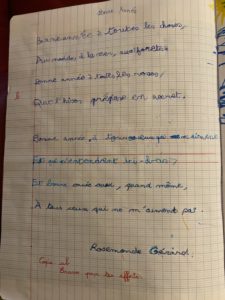 Bonne Année
Bonne année à toutes les choses,
Au monde, à la mer, aux forêts.
Bonne année à toutes les roses,
Que l'hiver prépare en secret.
Bonne année, à tous ceux qui m'aiment
Et qui m'entendent ici-bas,
Et bonne année aussi, quand même,
À tous ceux qui ne m'aiment pas.
Rosemonde Gérard
Bravo pour tes efforts.